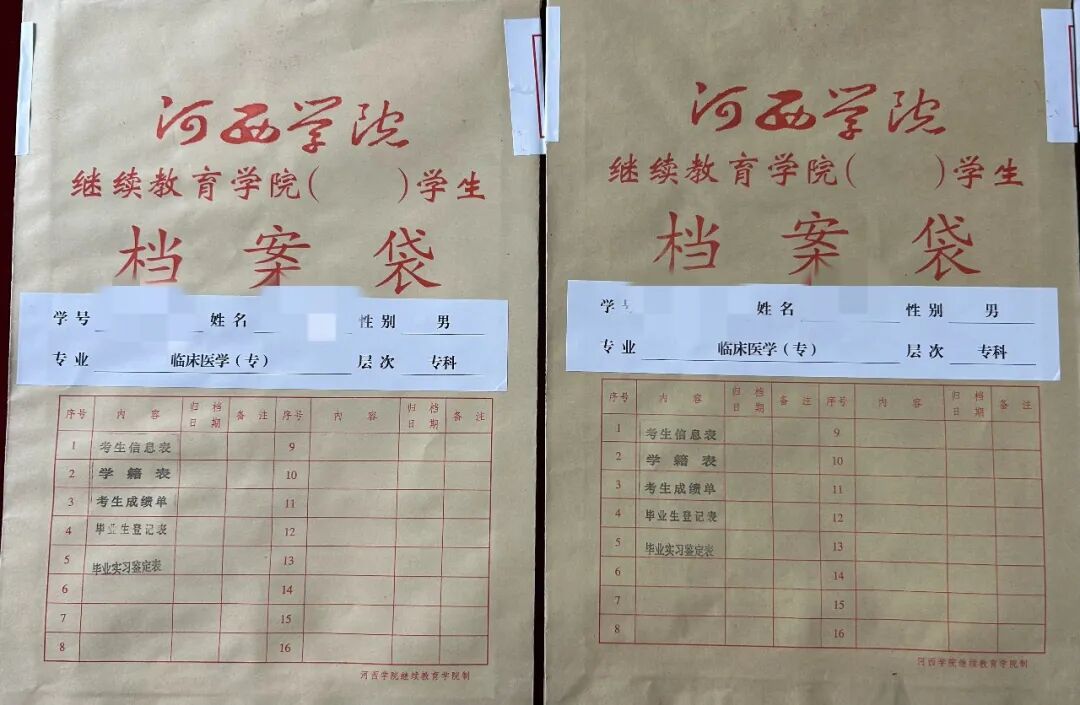 河西学院
继续教育学院（ ）学生
档案袋
学号 姓名 性别 男
专业 临床医学（专） 层次 专科
序号 内容 归档日期 备注 序号 内容 归档日期 备注
1 考生信息表 9
2 学籍表 10
3 考生成绩单 11
4 毕业生登记表 12
5 毕业实习鉴定表 13
6 14
7 15
8 16
河西学院继续教育学院制
河西学院
继续教育学院（ ）学生
档案袋
学号 姓名 性别 男
专业 临床医学（专） 层次 专科
序号 内容 归档日期 备注 序号 内容 归档日期 备注
1 考生信息表 9
2 学籍表 10
3 考生成绩单 11
4 毕业生登记表 12
5 毕业实习鉴定表 13
6 14
7 15
8 16
河西学院继续教育学院制